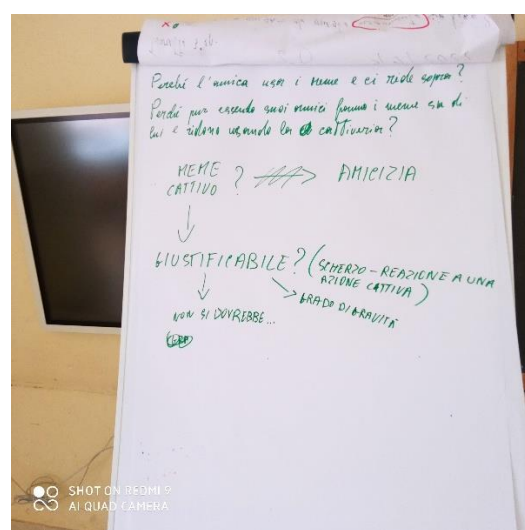 Perché l'amica usa i meme e ci ride sopra?
Perché pur essendo suoi amici fanno i meme su di
lui e ridono usando la cattiveria?
MEME
CATTIVO ? AMICIZIA
GIUSTIFICABILE? (SCHERZO - REAZIONE A UNA
AZIONE CATTIVA)
GRADO DI GRAVITÀ
NON SI DOVREBBE...
SHOT ON REDMI 9
AI QUAD CAMERA